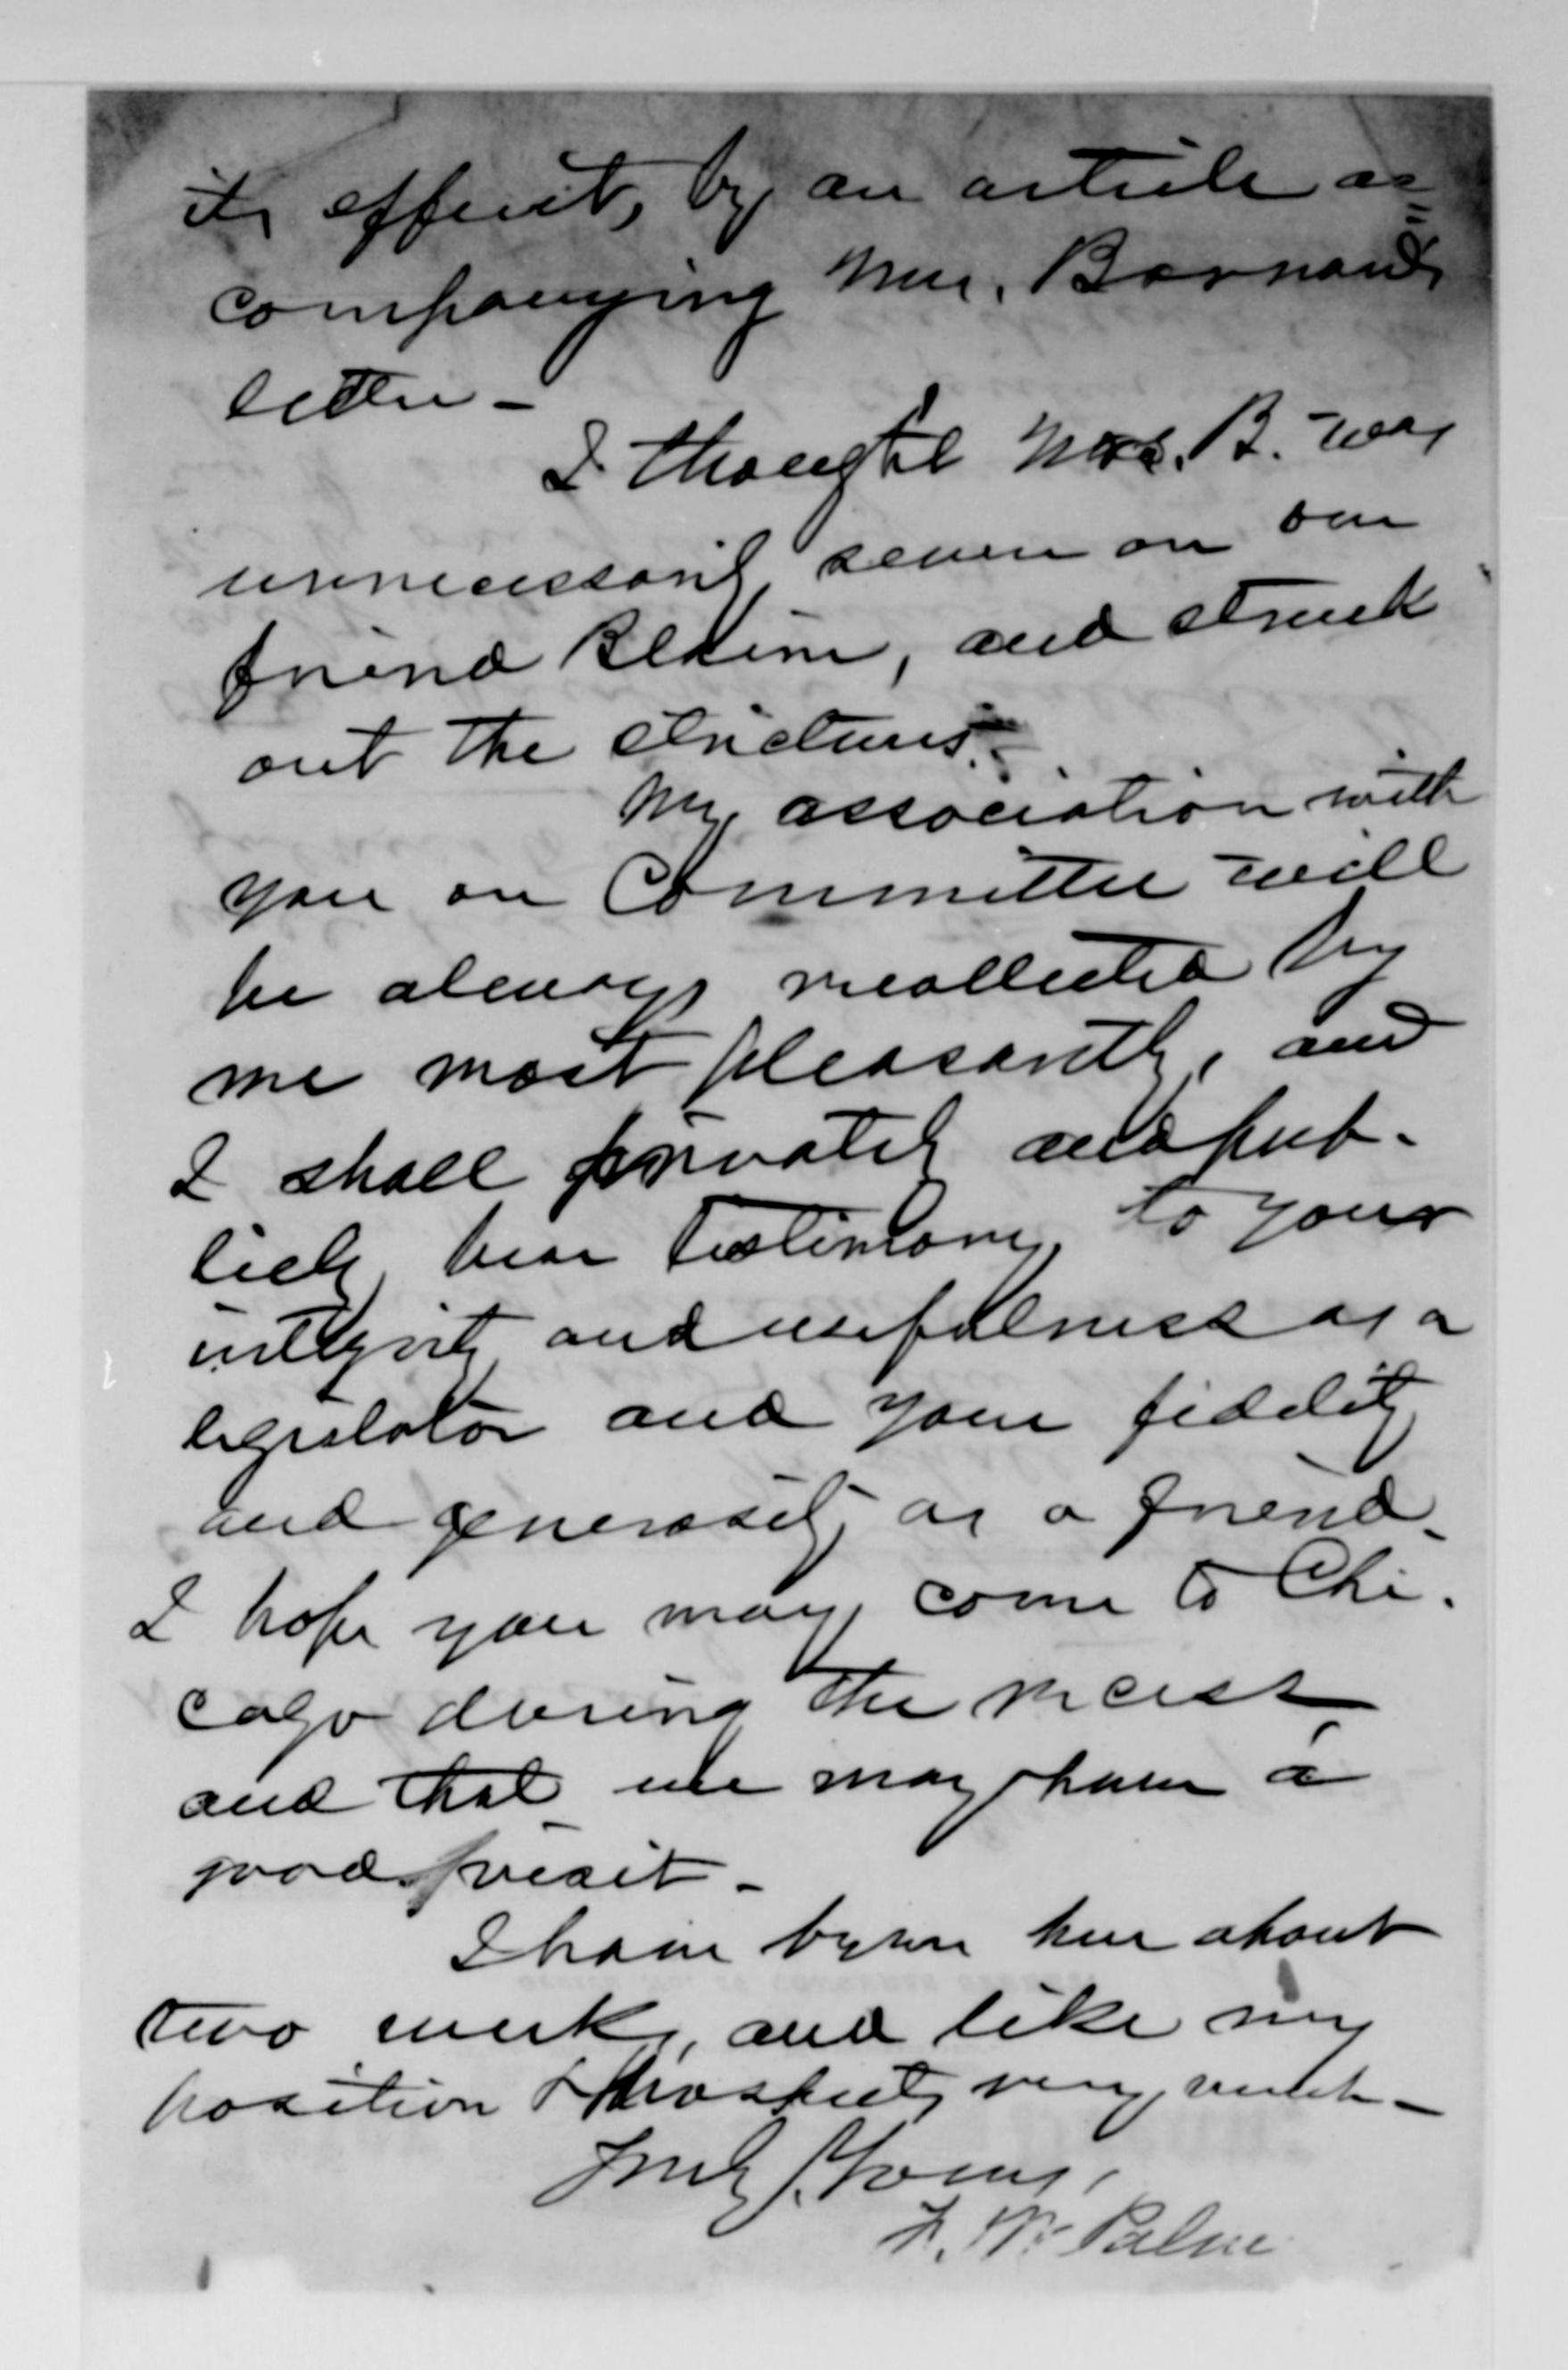 its effect, by an article ac=
companying Mrs. Barnard's
letter -
I thought Mrs. B. was
unnecessarily severe on our
friend Blaine, and struck
out the strictures.
My association with
you on Committee will
be always recollected by
me most pleasantly, and
I shall privately and pub-
licly bear testimony to your
integrity and usefulness as a
legislator and your fidelity
and generosity as a friend.
I hope you may come to Chi-
cago during the recess
and that we may have a
good visit -
I have been here about
two weeks, and like my
position & prospects very much -
Truly Yours,
F. W. Palmer